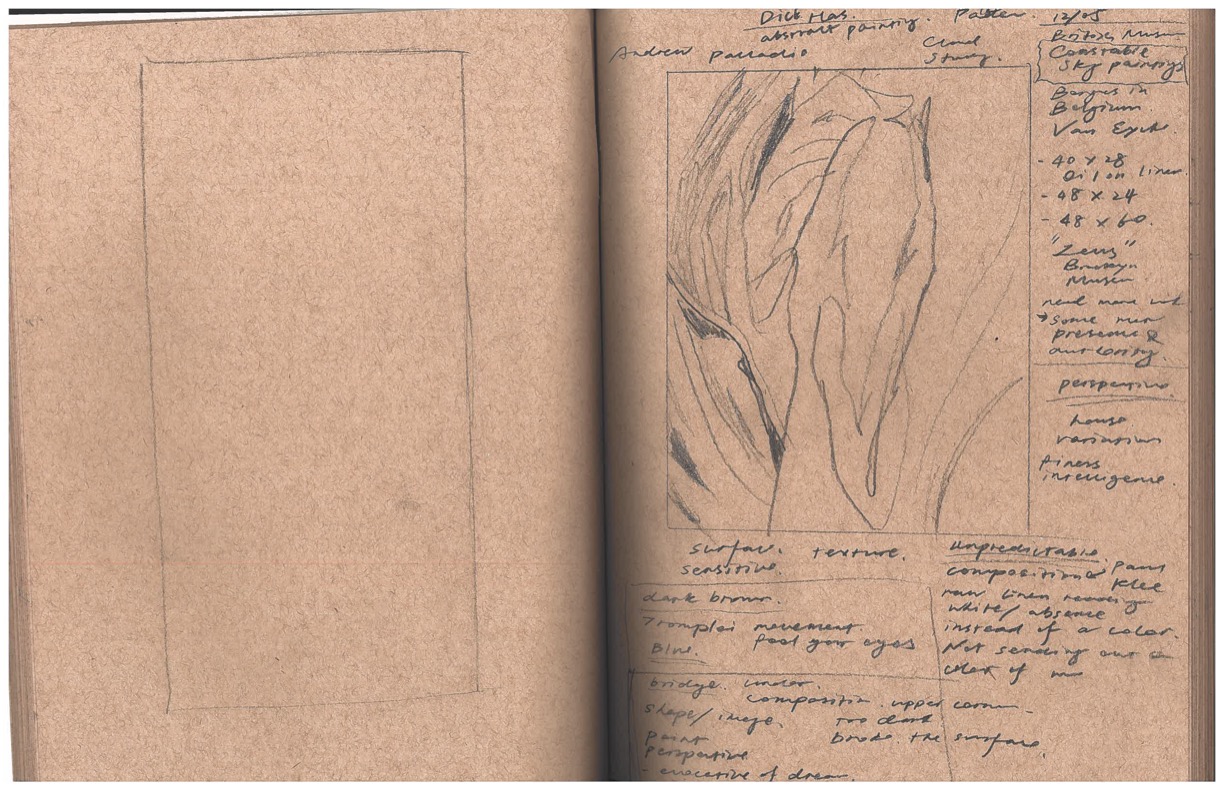 Dick Has.
abstract painting.
Andrew Palladio
Cloud
Study.
12/05
British Museum
Constable
Sky paintings
Belgium.
- 40 x 28
Oil on linen.
- 48 x 24
- 48 x 60.
"Zeus"
Museum
need more
→ some more
presence &
authority.
perspective
house
variation
intelligence.
surface. texture.
sensitive.
dark brown.
Tromploi movement.
fool your eyes
Blue.
Unpredictable.
composition Paul
Klee
raw linen
white/absence
instead of a color.
Not sending out
color of
bridge. under.
composition. upper corner.
shape/image. too dark
paint broke. the surface.
perspective
- evocative of dream.